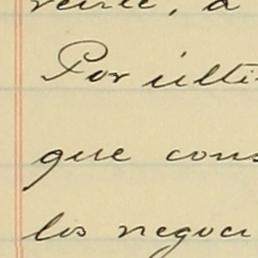 a
Por últi
que cons
los negoci